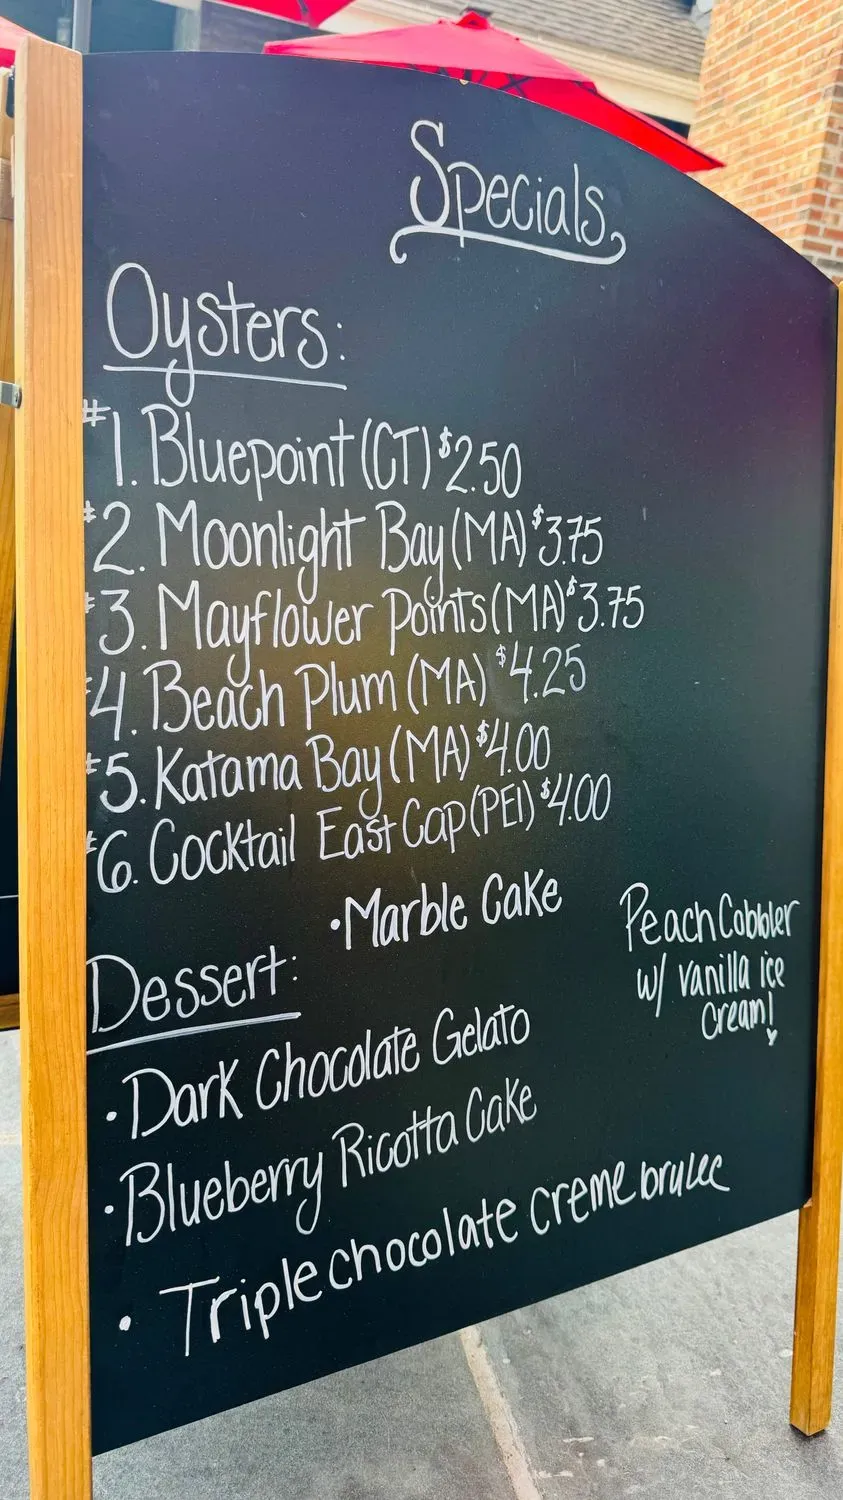 Specials
Oysters:
#1. Bluepoint (CT) $2.50
#2. Moonlight Bay (MA) $3.75
#3. Mayflower Points (MA) $3.75
#4. Beach Plum (MA) $4.25
#5. Katama Bay (MA) $4.00
#6. Cocktail East Cap (PEI) $4.00
•Marble Cake
Dessert:
•Dark Chocolate Gelato
•Blueberry Ricotta Cake
•Triple chocolate creme brulee
Peach Cobbler
w/ vanilla ice
cream!